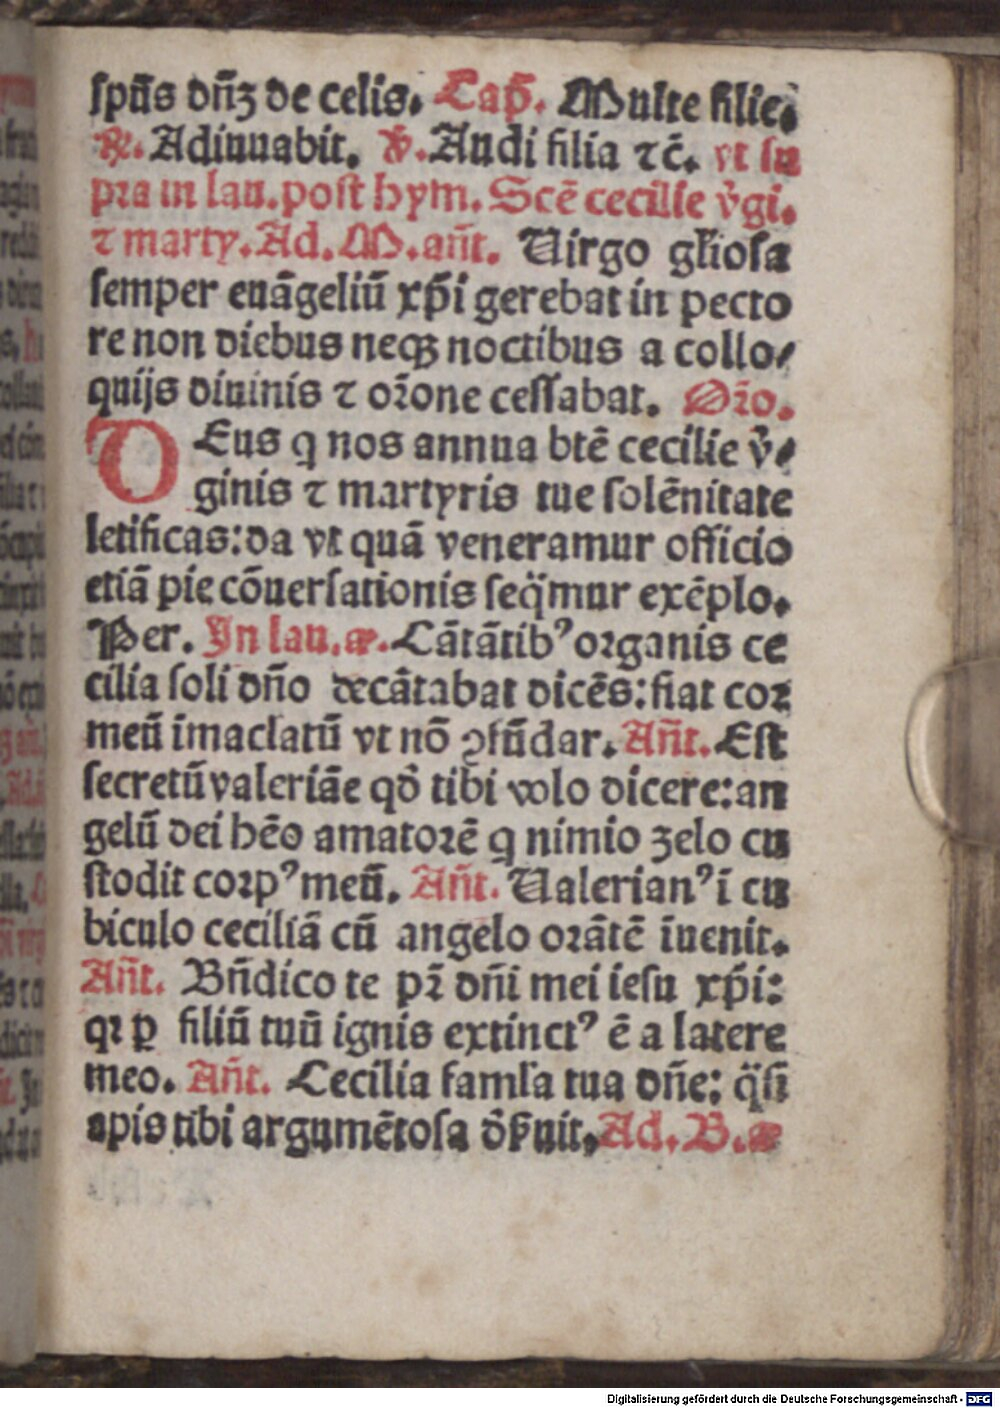 spūs dn̄ꝫ de celis. Cap̄. Multe filie.
℟. Adiuuabit. ℣. Audi filia ⁊c̄. vt su
pra in lau. post hym. Scē cecilie v̄gi.
⁊ marty. Ad. M. an̄t. Uirgo gl̄iosa
semper euāgeliū xp̄i gerebat in pecto
re non diebus neqꝫ noctibus a collo⸗
quijs diuinis ⁊ or̄one cessabat. Or̄o.
DEus q nos annua btē cecilie v̄⸗
ginis ⁊ martyris tue solēnitate
letificas: da vt quā veneramur officio
etiā pie cōuersationis seq̄mur exēplo.
Per. In lau. a. Cātātibꝰ organis ce
cilia soli dn̄o decātabat dicēs: fiat cor
meū īmaclatū vt nō ꝯfūdar. An̄t. Est
secretū valeriāe qd̄ tibi volo dicere: an
gelū dei hēo amatorē q nimio zelo cu
stodit corpꝰ meū. An̄t. Ualerianꝰ ī cu
biculo ceciliā cū angelo orātē īuenit.
An̄t. Bn̄dico te pr̄ dn̄i mei iesu xp̄i:
qꝛ ꝑ filiū tuū ignis extinctꝰ ē a latere
meo. An̄t. Cecilia famla tua dn̄e: q̄si
apis tibi argumētosa d̄ẜuit. Ad. B. a
Digitalisierung gefördert durch die Deutsche Forschungsgemeinschaft - DFG